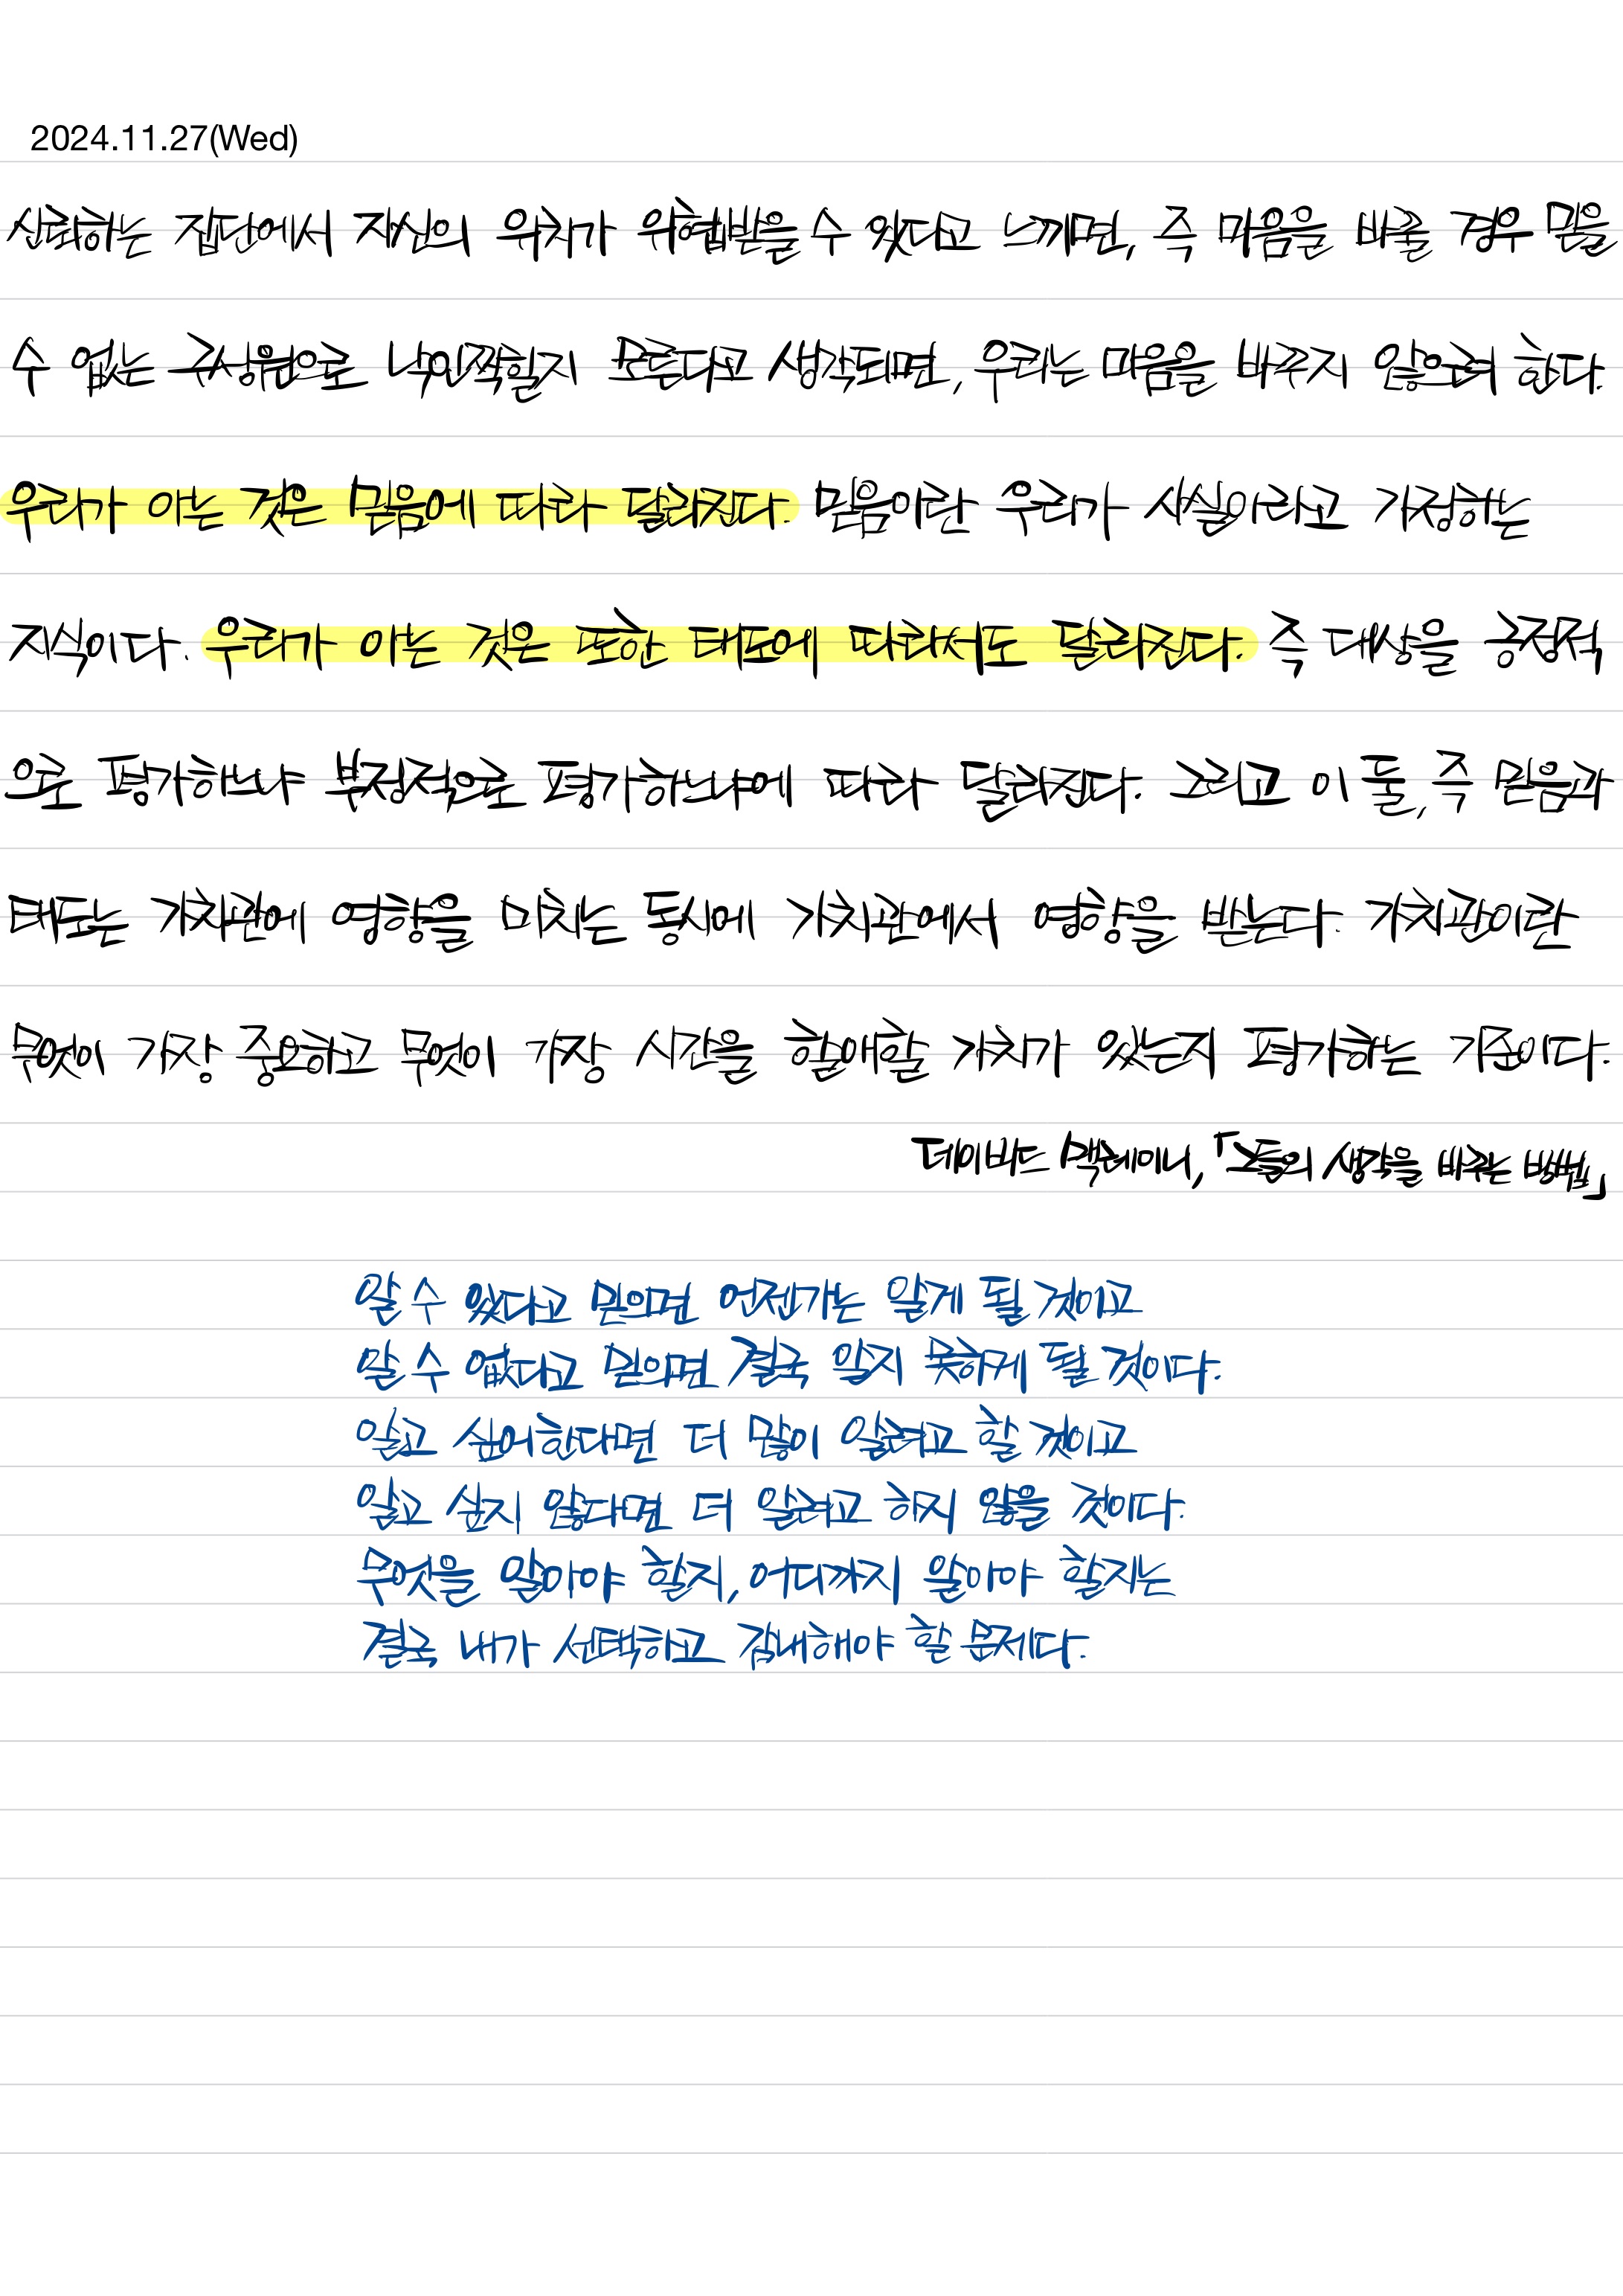 2024.11.27(Wed)
신뢰하는 집단에서 자신의 위치가 위협받을 수 있다고 느끼면, 즉 마음을 바꿀 경우 믿을
수 없는 구성원으로 낙인찍힐지 모른다고 생각되면, 우리는 마음을 바꾸지 않으려 한다.
우리가 아는 것은 믿음에 따라 달라진다. 믿음이란 우리가 사실이라고 가정하는
지식이다. 우리가 아는 것은 또한 태도에 따라서도 달라진다. 즉 대상을 긍정적
으로 평가하느냐 부정적으로 평가하느냐에 따라 달라진다. 그리고 이 둘, 즉 믿음과
태도는 가치관에 영향을 미치는 동시에 가치관에서 영향을 받는다. 가치관이란
무엇이 가장 중요하고 무엇이 가장 시간을 할애할 가치가 있는지 평가하는 기준이다.
데이비드 맥레이니, 「그들의 생각을 바꾸는 방법」
알 수 있다고 믿으면 언젠가는 알게 될 것이고
알 수 없다고 믿으면 결국 알지 못하게 될 것이다.
알고 싶어한다면 더 많이 알려고 할 것이고
알고 싶지 않다면 더 알려고 하지 않을 것이다.
무엇을 알아야 할지, 어디까지 알아야 할지는
결국 내가 선택하고 감내해야 할 문제다.